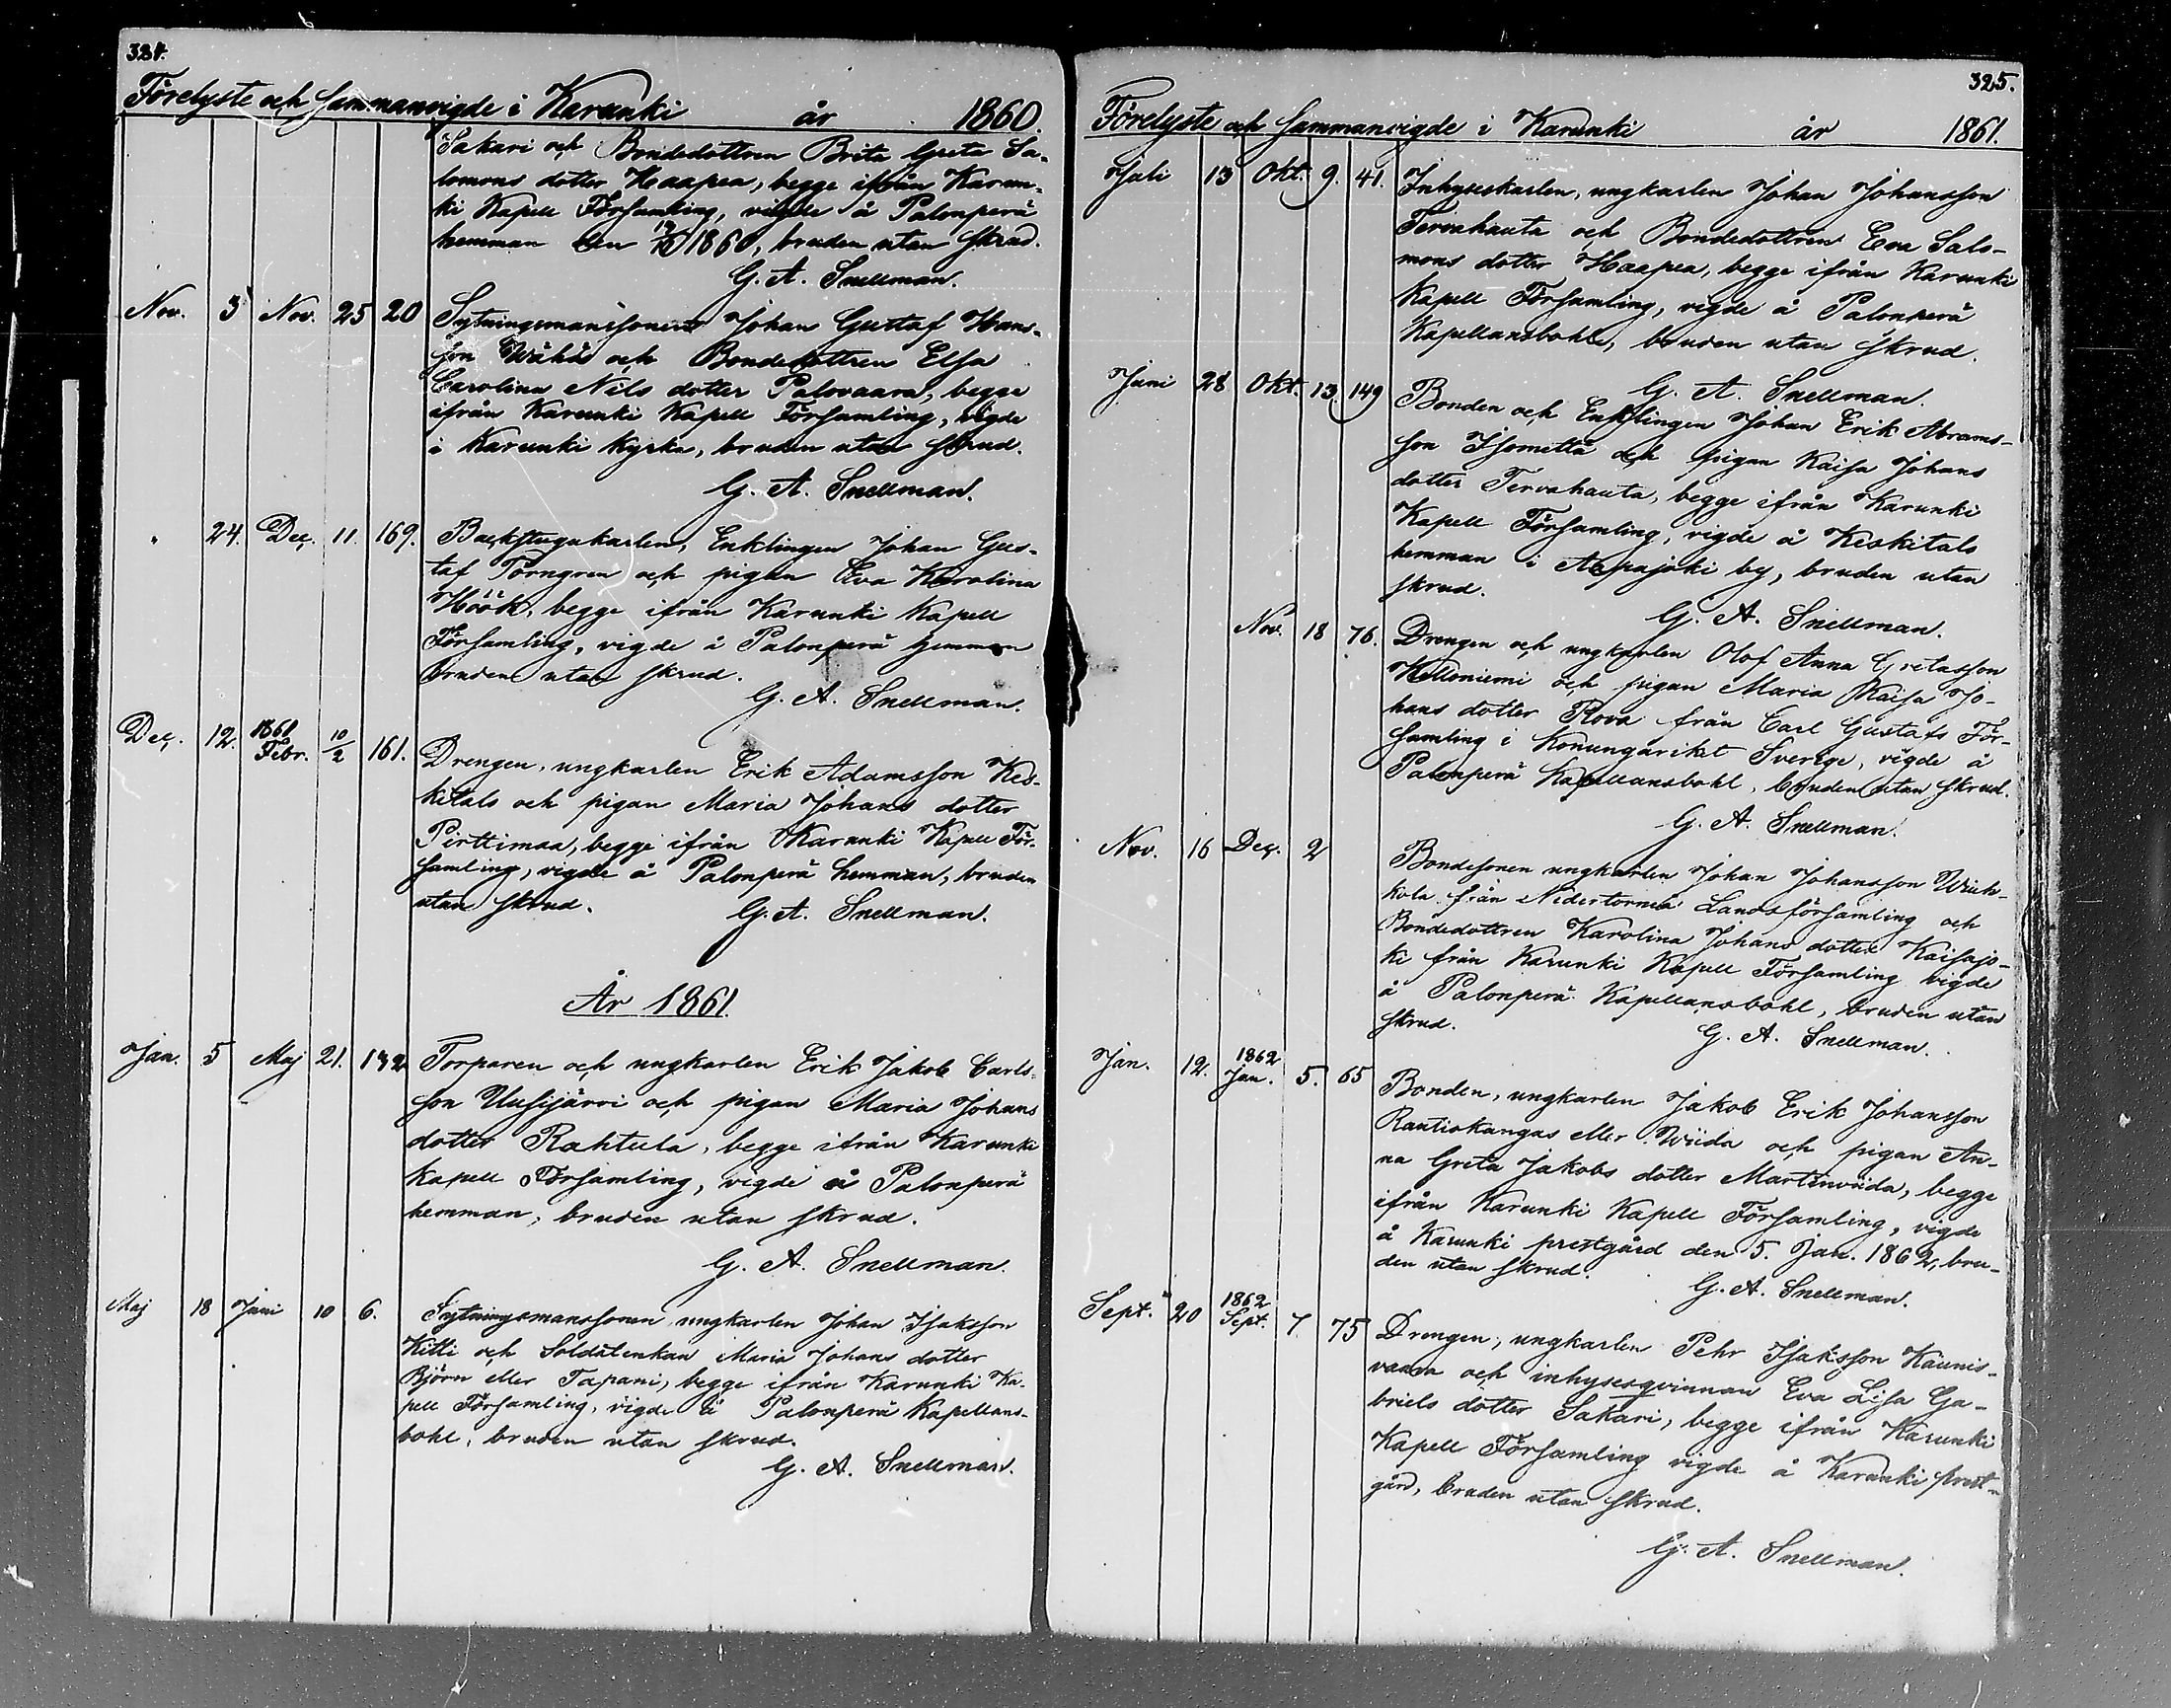 324.
Förelyste och Sammanvigde i Karunki år 1860.
Sakari och Bondedottren Brita Greta Sa-
lomons dotter Haapea, begge ifrån Karun-
ki Kapell Församling, vigde å Palonperä
hemman den 1860, bruden utan skrud.
G. A. Snellman.
Nov. 3 Nov. 25 20 Sytningsmanssonen Johan Gustaf Hans-
son Wähä och Bondedottren Elsa
Carolina Nils dotter Palovaara, begge
ifrån Karunki Kapell Församling, vigde
i Karunki Kyrka, bruden utan skrud.
G. A. Snellman.
" 24. Dec. 11. 169. Backstugukarlen, Enklingen Johan Gus-
taf Törngren och pigan Eva Karolina
Höök, begge ifrån Karunki Kapell
Församling, vigde å Palonperä hemman
bruden utan skrud.
G. A. Snellman.
Dec. 12. 1861 Febr. 10/2 161. Drengen, ungkarlen Erik Adamsson Kes-
kitalo och pigan Maria Johans dotter
Pirttimaa, begge ifrån Karunki Kapell För-
samling, vigde å Palonperä hemman, bruden
utan skrud. G. A. Snellman.
År 1861.
Jan. 5 Maj 21. 132 Torparen och ungkarlen Erik Jakob Carls-
son Uusijärvi och pigan Maria Johans
dotter Rahtula, begge ifrån Karunki
Kapell Församling, vigde å Palonperä
hemman, bruden utan skrud.
G. A. Snellman.
Maj 18 Juni 10 6. Sytningsmanssonen ungkarlen Johan Isaksson
Kitti och Soldatenkan Maria Johans dotter
Björn eller Tapani, begge ifrån Karunki Ka-
pell Församling, vigde å Palonperä Kapellans-
bohl, bruden utan skrud.
G. A. Snellman.
325.
Förelyste och Sammanvigde i Karunki år 1861.
Juli 13 Okt. 9. 41. Inhyseskarlen, ungkarlen Johan Johansson
Tervahauta och Bondedottren Eva Salo-
mons dotter Haapea, begge ifrån Karunki
Kapell Församling, vigde å Palonperä
Kapellansbohle, bruden utan skrud.
G. A. Snellman.
Juni 28 Okt. 13. 149 Bonden och Enklingen Johan Erik Abrams-
son Isometta och pigan Kaisa Johans
dotter Tervahauta, begge ifrån Karunki
Kapell Församling, vigde å Keskitalo
hemman i Aapajoki by, bruden utan
skrud.
G. A. Snellman.
Nov. 18 76. Drengen och ungkarlen Olof Anna Gretasson
Kelloniemi och pigan Maria Kaisa Jo-
hans dotter Rova från Carl Gustafs För-
samling i Konungariket Sverige, vigde å
Palonperä Kapellansbohl, bruden utan skrud.
G. A. Snellman.
Nov. 16 Dec. 2 Bondesonen ungkarlen Johan Johansson
kola från Nedertorneå Landsförsamling och
Bondedottren Karolina Johans dotter Kaisajo-
ki från Karunki Kapell Församling vigde
å Palonperä Kapellansbohl, bruden utan
skrud. G. A. Snellman.
Jan. 12. 1862 Jan. 5. 65 Bonden, ungkarlen Jakob Erik Johansson
Rautiokangas eller Wiida och pigan An-
na Greta Jakobs dotter Martinviida, begge
ifrån Karunki Kapell Församling, vigde
å Karunki prestgård den 5. Jan. 1862, bru-
den utan skrud. G. A. Snellman.
Sept. 20 1862 Sept. 7. 75 Drengen, ungkarlen Pehr Isaksson Kaunis-
vaara och inhysesqvinnan Eva Lisa Ga-
briels dotter Sakari, begge ifrån Karunki
Kapell Församling vigde å Karunki prest-
gård, bruden utan skrud.
G. A. Snellman.